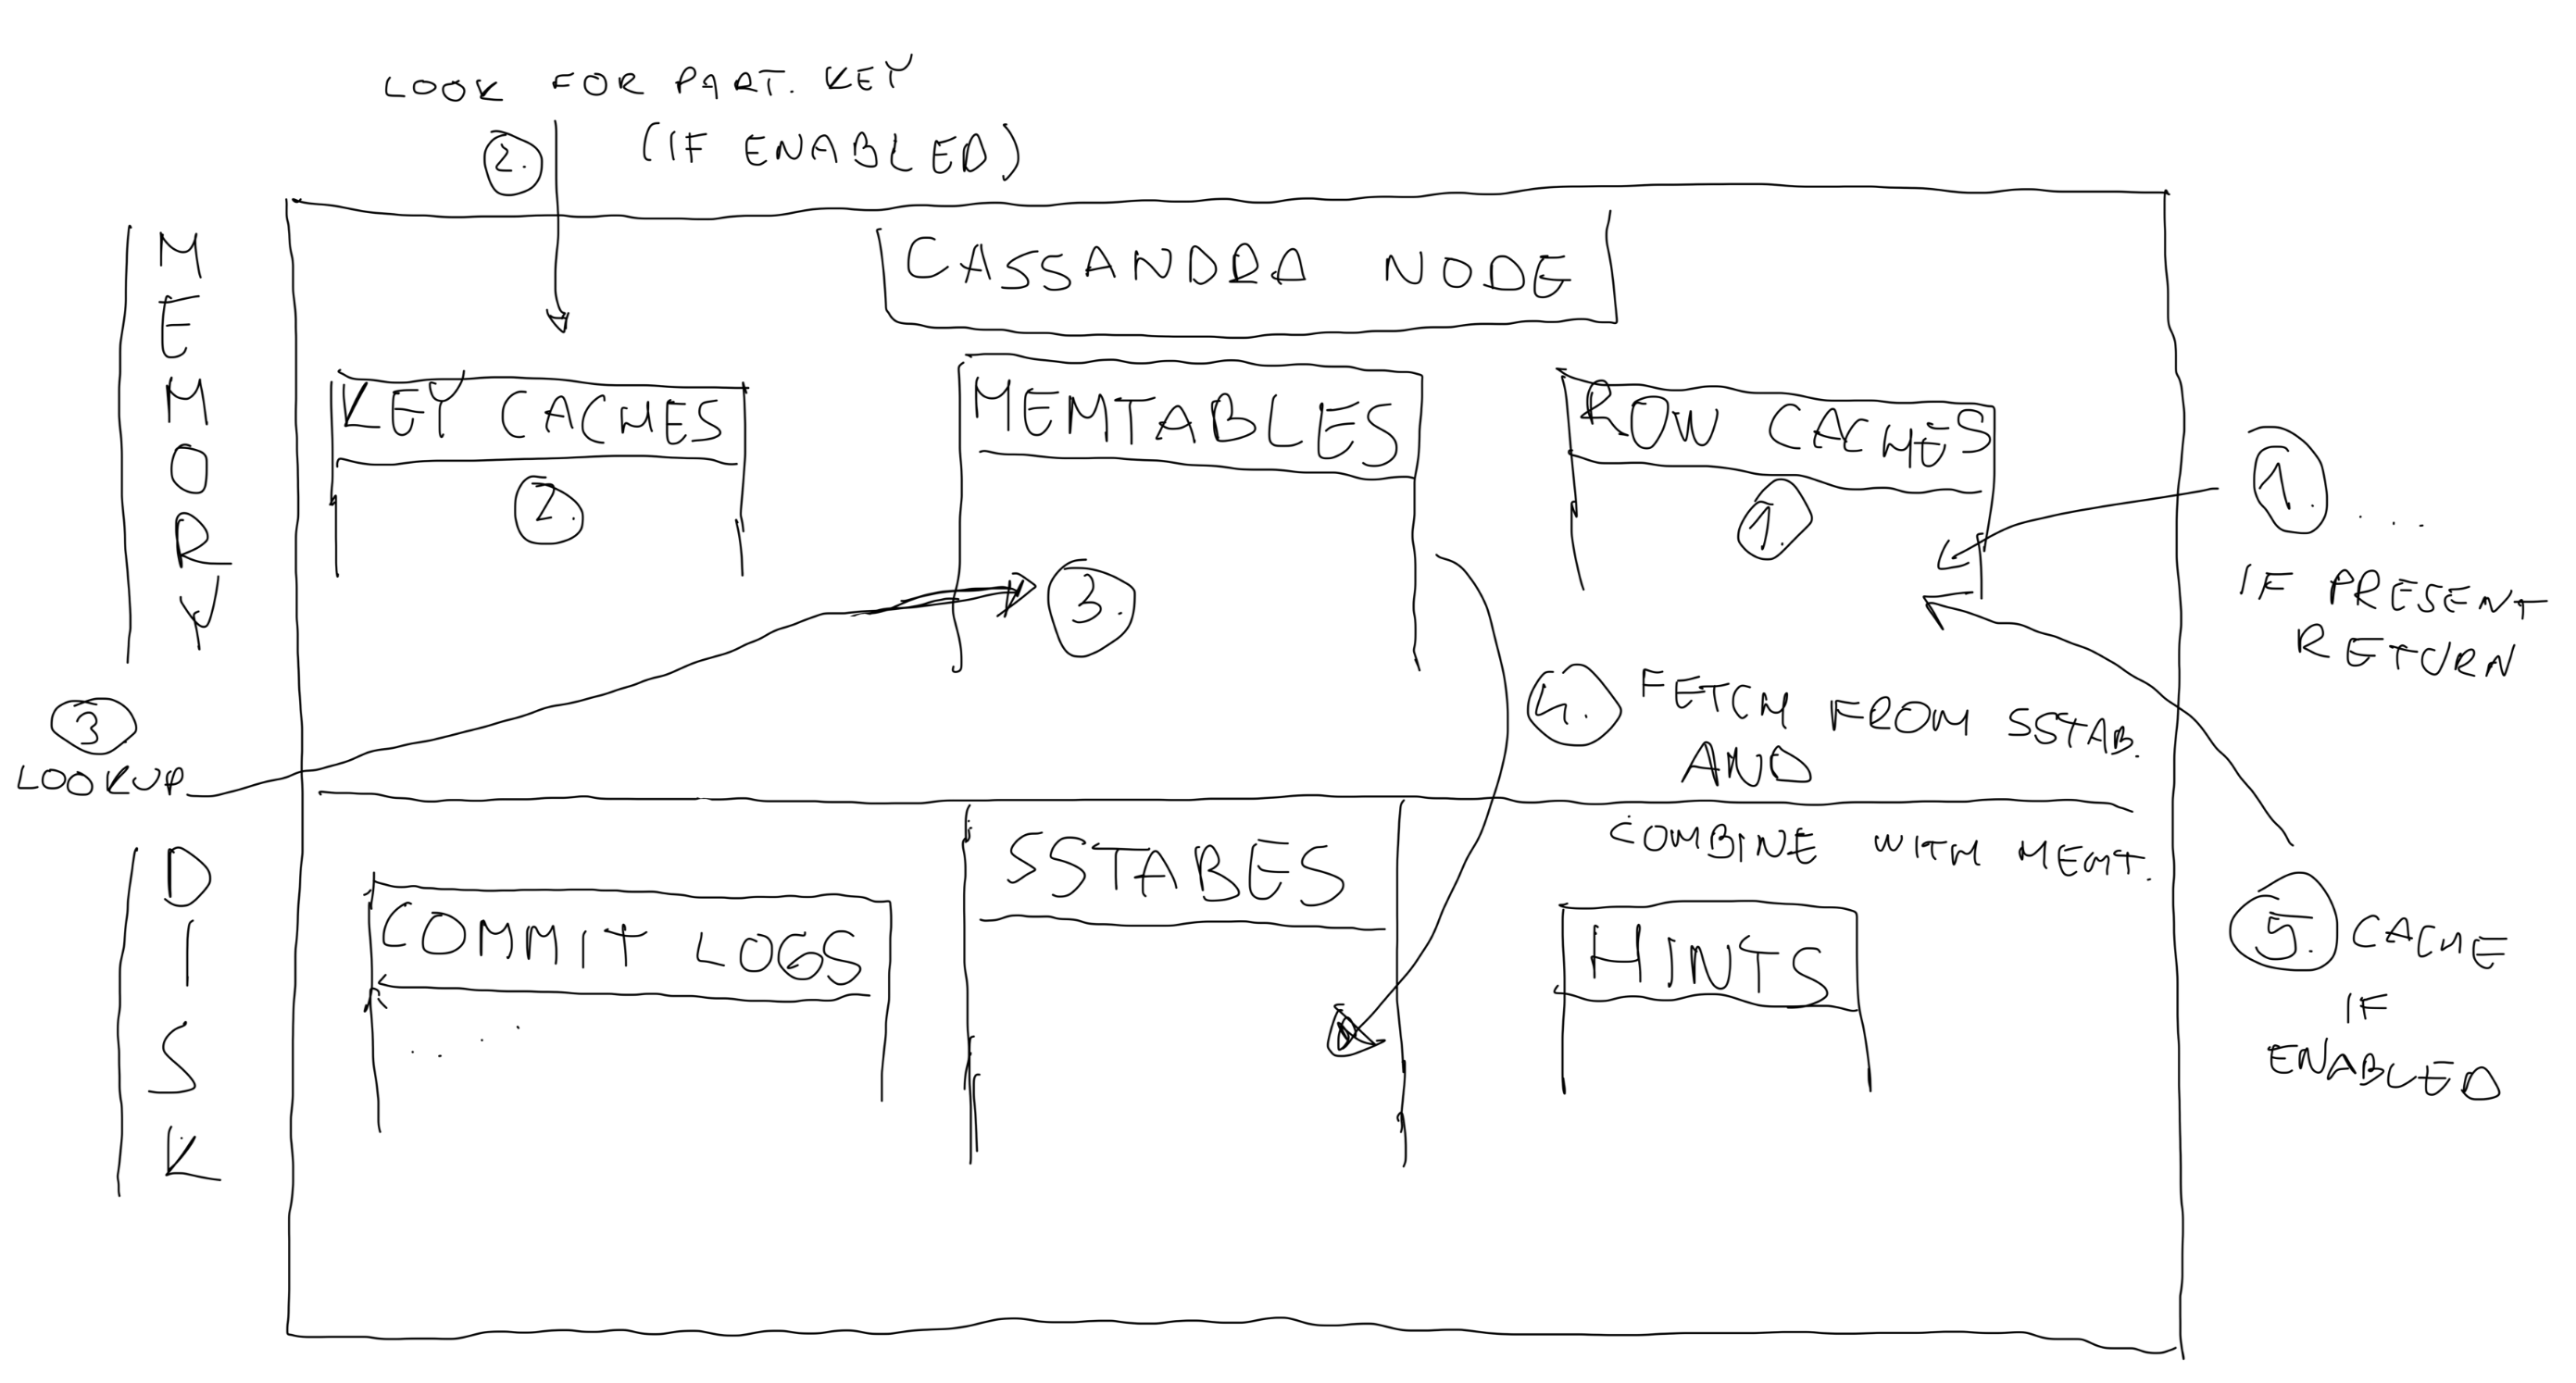 LOOK FOR PART. KEY
(IF ENABLED)
2.
CASSANDRA NODE
MEMORY
KEY CACHES
2.
MEMTABLES
3.
ROW CACHES
1.
1. ....
IF PRESENT
RETURN
3
LOOKUP
4. FETCH FROM SSTAB.
AND
COMBINE WITH MEMT.
DISK
COMMIT LOGS
....
SSTABES
HINTS
5. CACHE
IF
ENABLED